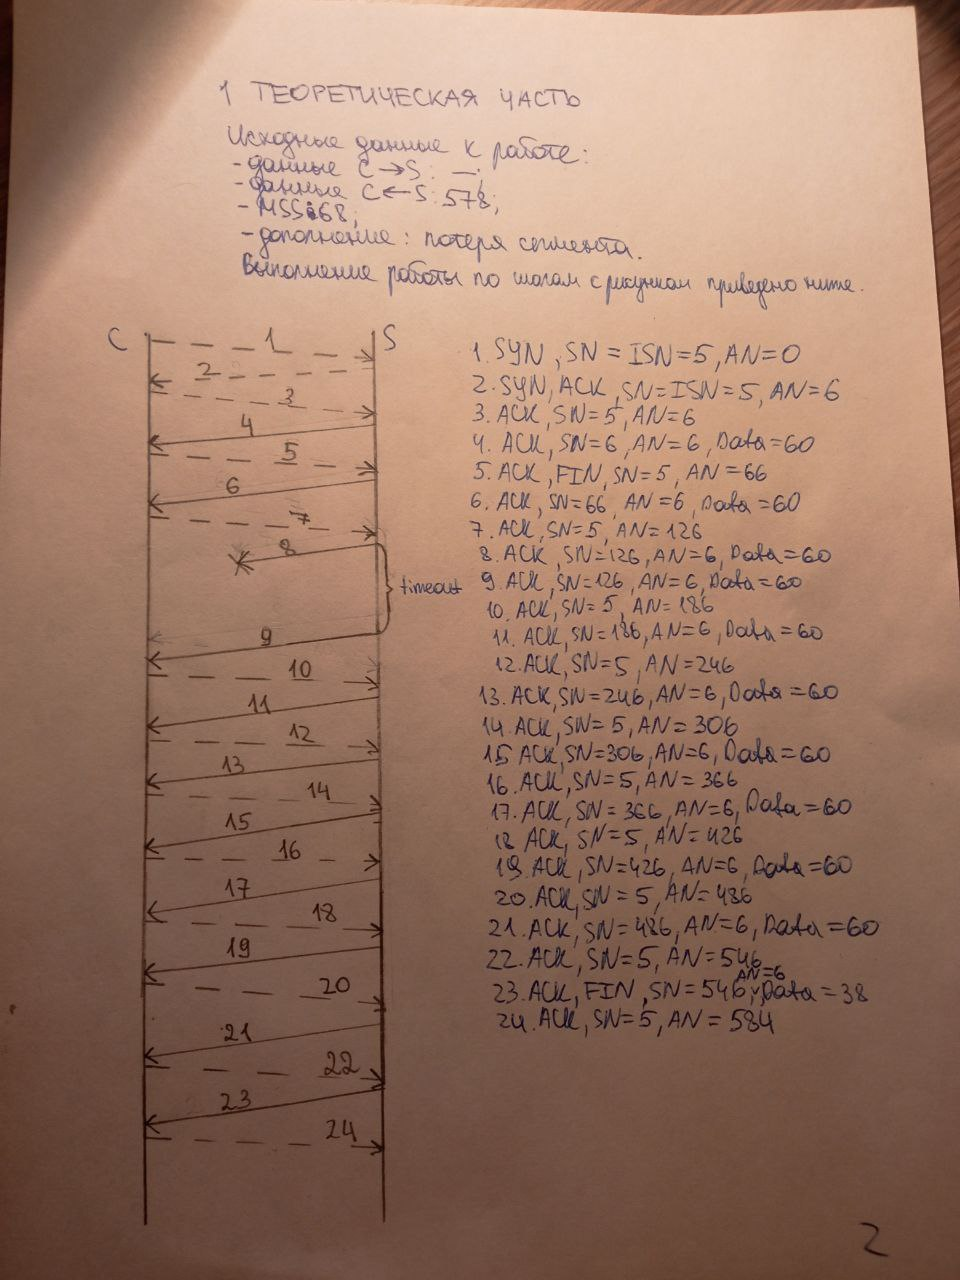 1 ТЕОРЕТИЧЕСКАЯ ЧАСТЬ
Исходные данные к работе:
- данные C → S: —;
- данные C ← S: 578;
- MSS: 68;
- дополнение: потеря сегмента.
Выполнение работы по шагам с рисунком приведено ниже.
C 1 S
2
3
4
5
6
7
8
timeout
9
10
11
12
13
14
15
16
17
18
19
20
21
22
23
24
1. SYN, SN = ISN=5, AN=0
2. SYN, ACK, SN=ISN=5, AN=6
3. ACK, SN=5, AN=6
4. ACK, SN=6, AN=6, Data=60
5. ACK, FIN, SN=5, AN=66
6. ACK, SN=66, AN=6, Data=60
7. ACK, SN=5, AN=126
8. ACK, SN=126, AN=6, Data=60
9. ACK, SN=126, AN=6, Data=60
10. ACK, SN=5, AN=186
11. ACK, SN=186, AN=6, Data=60
12. ACK, SN=5, AN=246
13. ACK, SN=246, AN=6, Data=60
14. ACK, SN=5, AN=306
15 ACK, SN=306, AN=6, Data=60
16. ACK, SN=5, AN=366
17. ACK, SN=366, AN=6, Data=60
18 ACK, SN=5, AN=426
19. ACK, SN=426, AN=6, Data=60
20. ACK, SN=5, AN=486
21. ACK, SN=486, AN=6, Data=60
22. ACK, SN=5, AN=546
23. ACK, FIN, SN=546, AN=6, Data=38
24. ACK, SN=5, AN=584
2